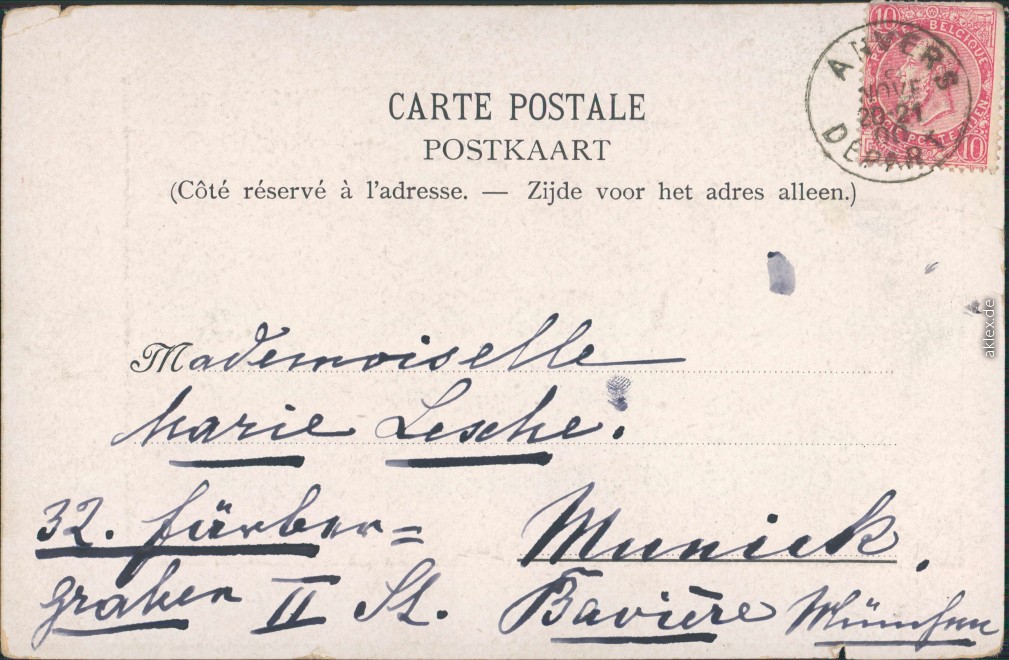 CARTE POSTALE
POSTKAART
(Côté réservé à l'adresse. — Zijde voor het adres alleen.)
10 BELGIQUE 10
ANVERS
NOVE
20-21
DEPART
Mademoiselle
Marie Lesche.
32. Färber=
graben II St.
Munick,
Bavière München
aklex.de